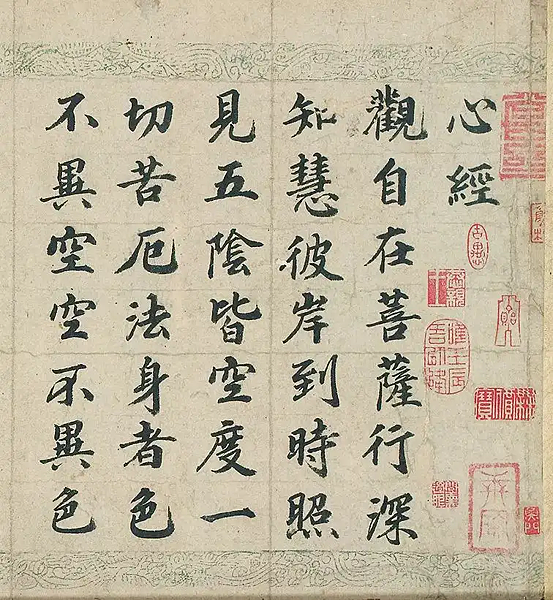 心經
觀自在菩薩行深
知慧彼岸到時照
見五陰皆空度一
切苦厄法身者色
不異空空不異色